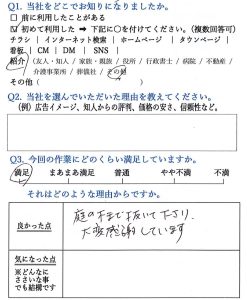 Q1. 当社をどこでお知りになりましたか？
□ 前に利用したことがある
☑ 初めて利用した ⇒ 下記に○を付けてください。(複数回答可)
チラシ | インターネット検索 | ホームページ | タウンページ |
看板 | CM | DM | SNS |
紹介 (友人・知人 / 家族・親族 / 役所 / 行政書士 / 病院 / 不動産 /
介護事業所 / 葬儀社 / その他
その他 ( )
Q2. 当社を選んでいただいた理由を教えてください。
(例) 広告イメージ、知人からの評判、価格の安さ、信頼性など。
Q3. 今回の作業にどのくらい満足していますか。
満足 まあまあ満足 普通 やや不満 不満
それはどのような理由からですか。
良かった点
庭の木まで抜いて下さり、
大変感謝しています
気になった点
※どんなに
ささいな事
でも結構です